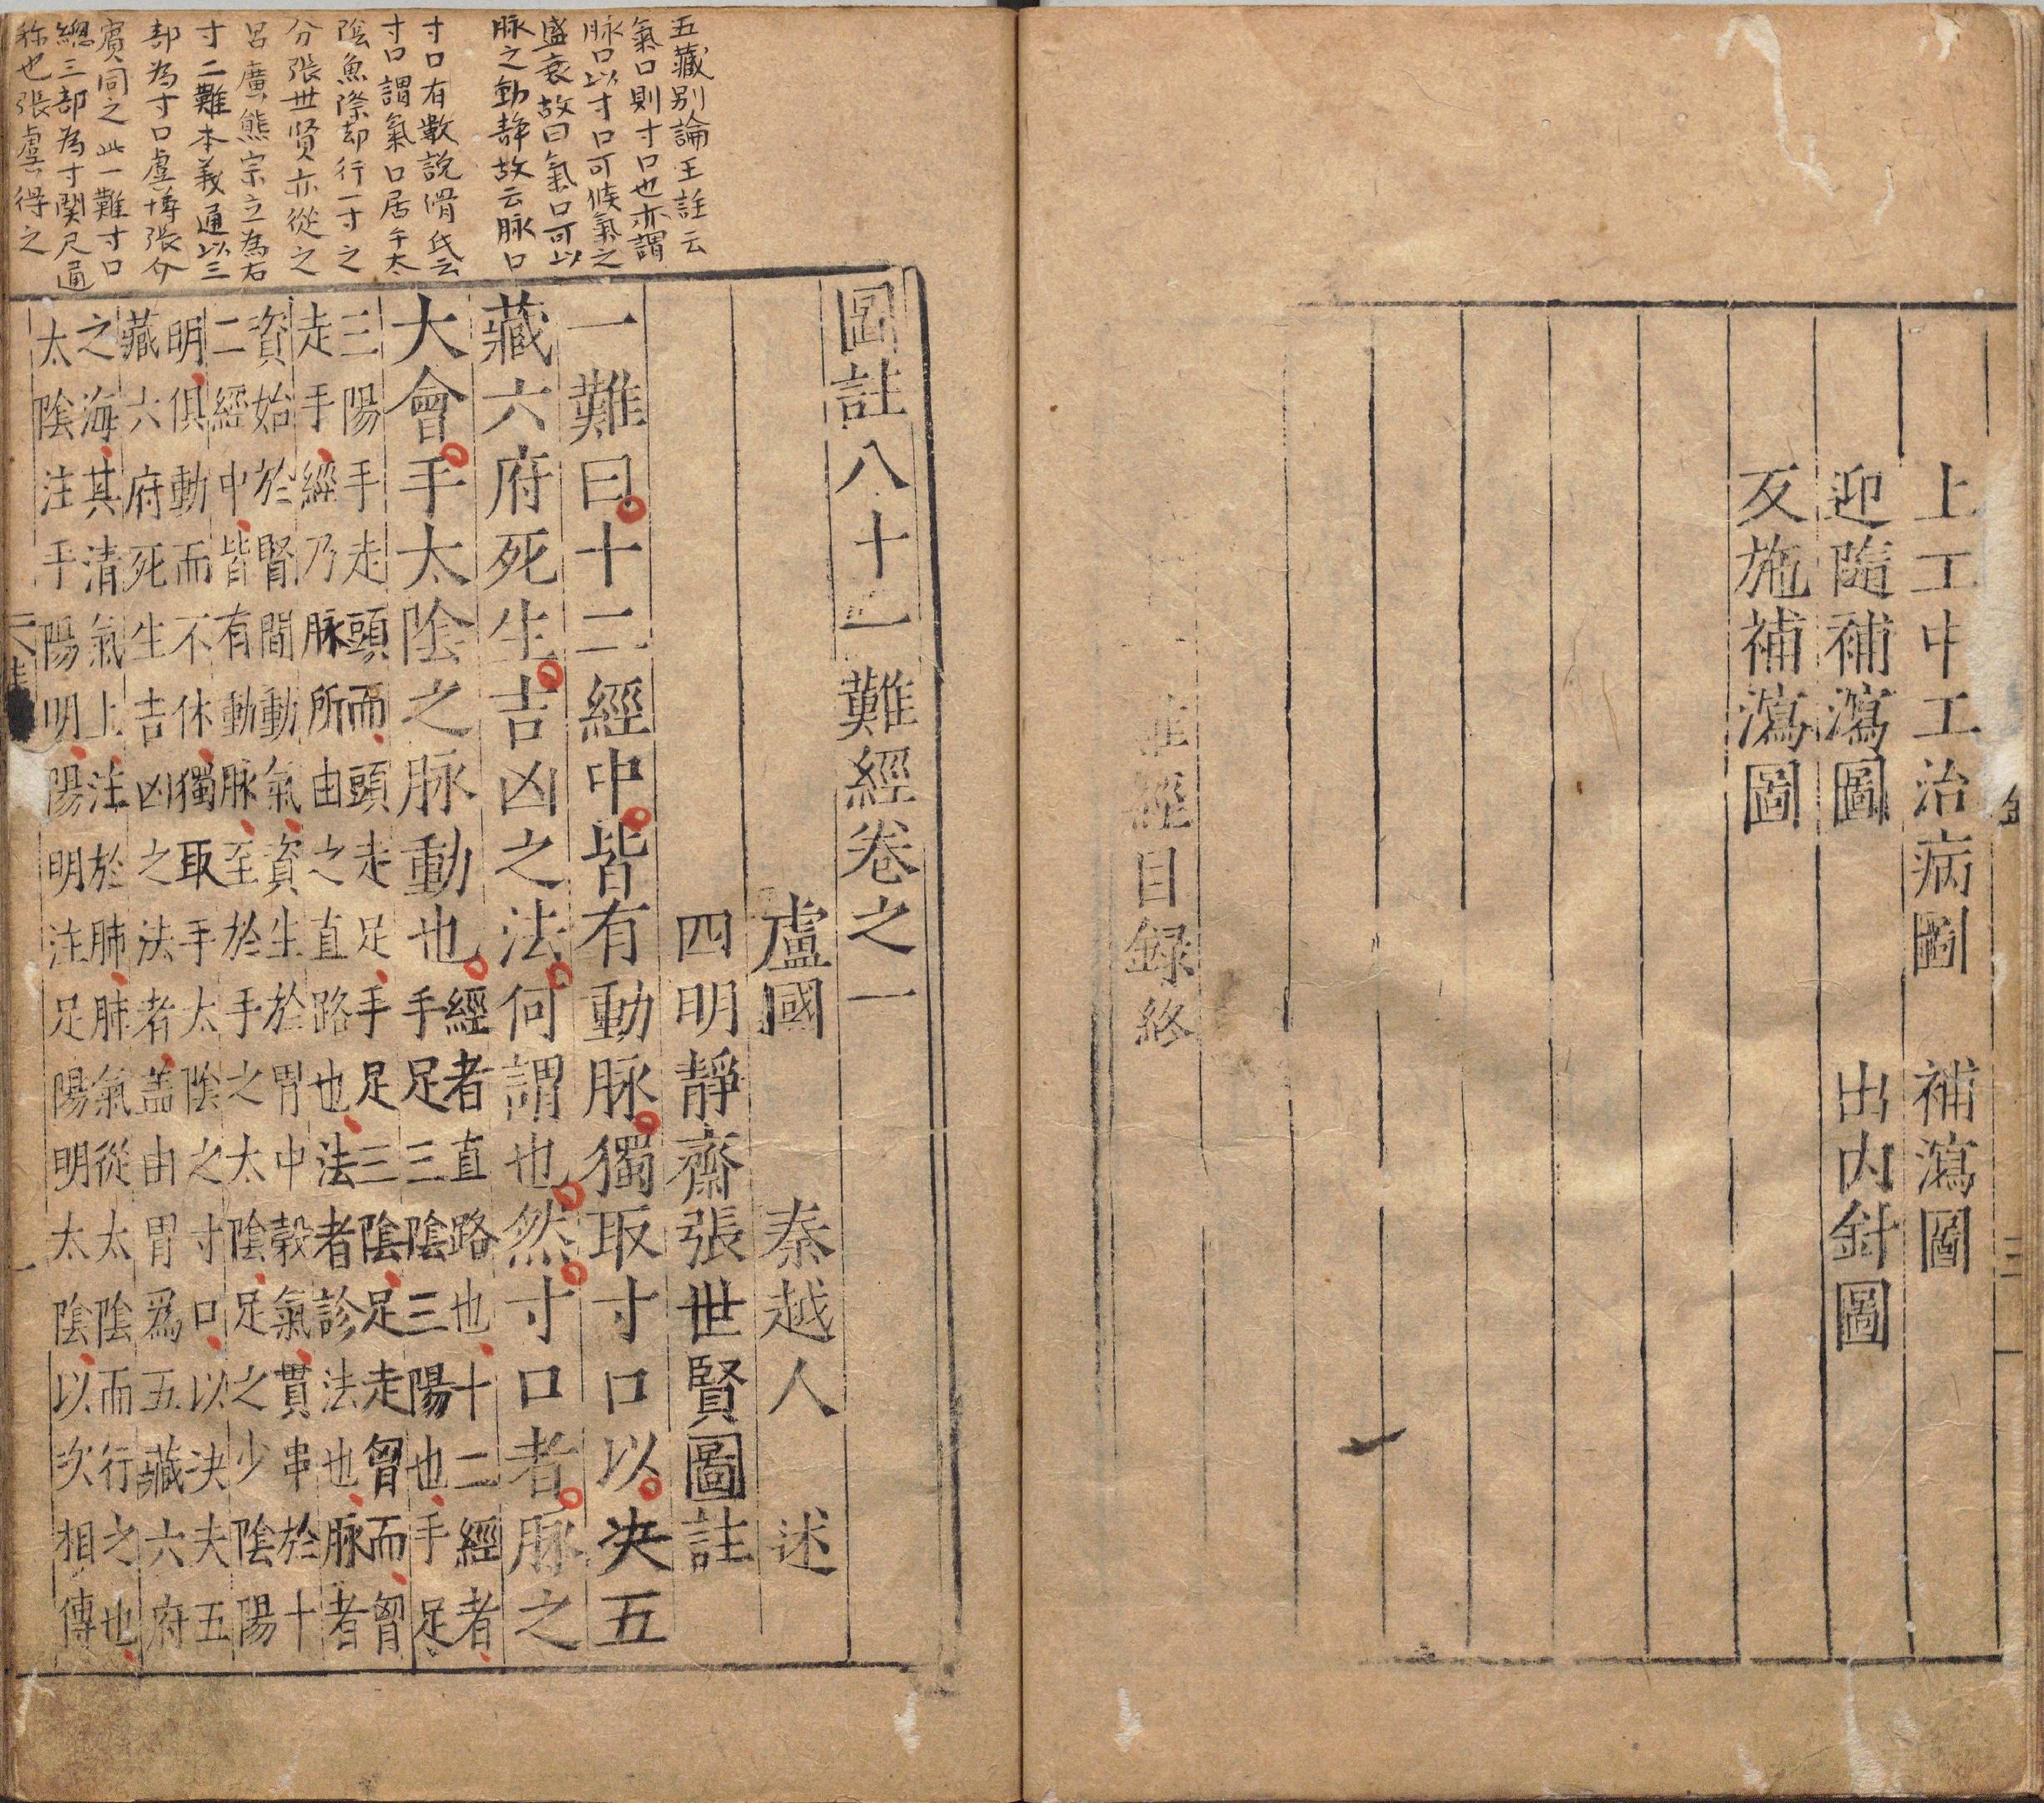 上工中工治病圖　補瀉圖
迎隨補瀉圖　出內針圖
反施補瀉圖
難經目録終
五藏别論王註云
氣口則寸口也亦謂
脉口以寸口可候氣之
盛衰故曰氣口可以
脉之動静故云脉口
寸口有數説滑氏云
寸口謂氣口居手太
陰魚際却行一寸之
分張世贤亦從之
呂廣熊宗立為右
寸二難本義通以三
部為寸口虞博張介
賓同之此一難寸口
總三部為寸関尺通
称也張虞得之
圖註八十一難經卷之一
盧國　秦越人　述
四明靜齋張世賢圖註
一難曰十二經中皆有動脉獨取寸口以决五
藏六府死生吉凶之法何謂也然寸口者脉之
大會手太陰之脉動也
經者直路也十二經者
手足三陰三陽也手足
三陽手走頭而頭走足手足三陰足走胷而胷
走手經乃脉所由之直路也法者診法也脉者
資始於腎間動氣資生於胃中穀氣貫串於十
二經中皆有動脉至於手之太陰足之少陰陽
明俱動而不休獨取手太陰之寸口以决夫五
藏六府死生吉凶之法者盖由胃爲五藏六府
之海其清氣上注於肺肺氣從太陰而行之也
太陰注手陽明陽明注足陽明太陰以次相傳
一